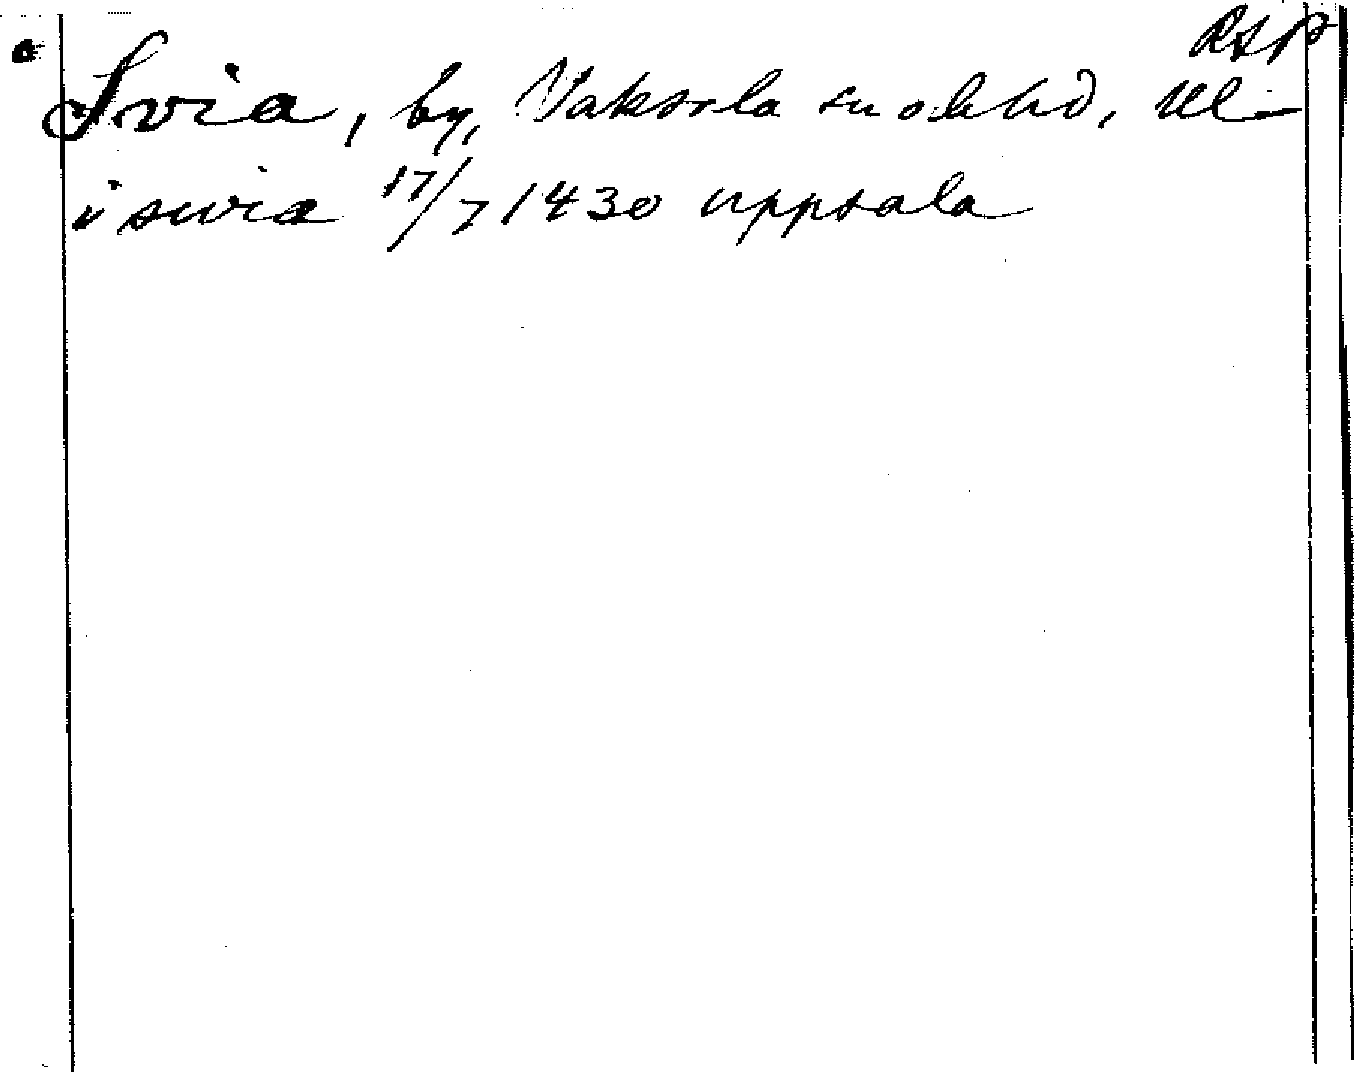 RAp
Svia, by, Vaksala sn o hd, Ul
i swia 17/7 1430 Uppsala